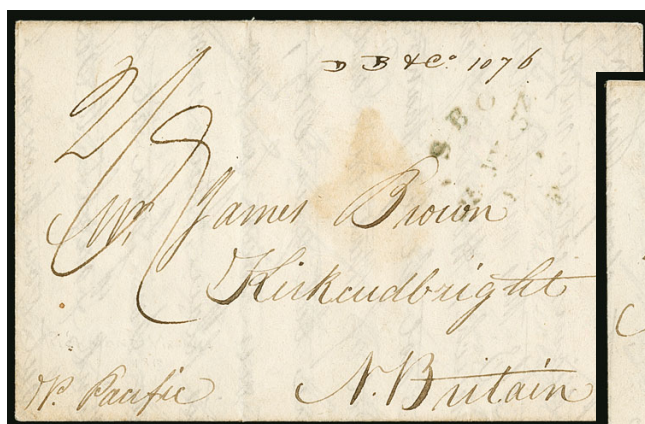 D B & Co. 1076
2/8
Mr. James Brown
Kirkcudbright
N. Britain
Pr. Pacific